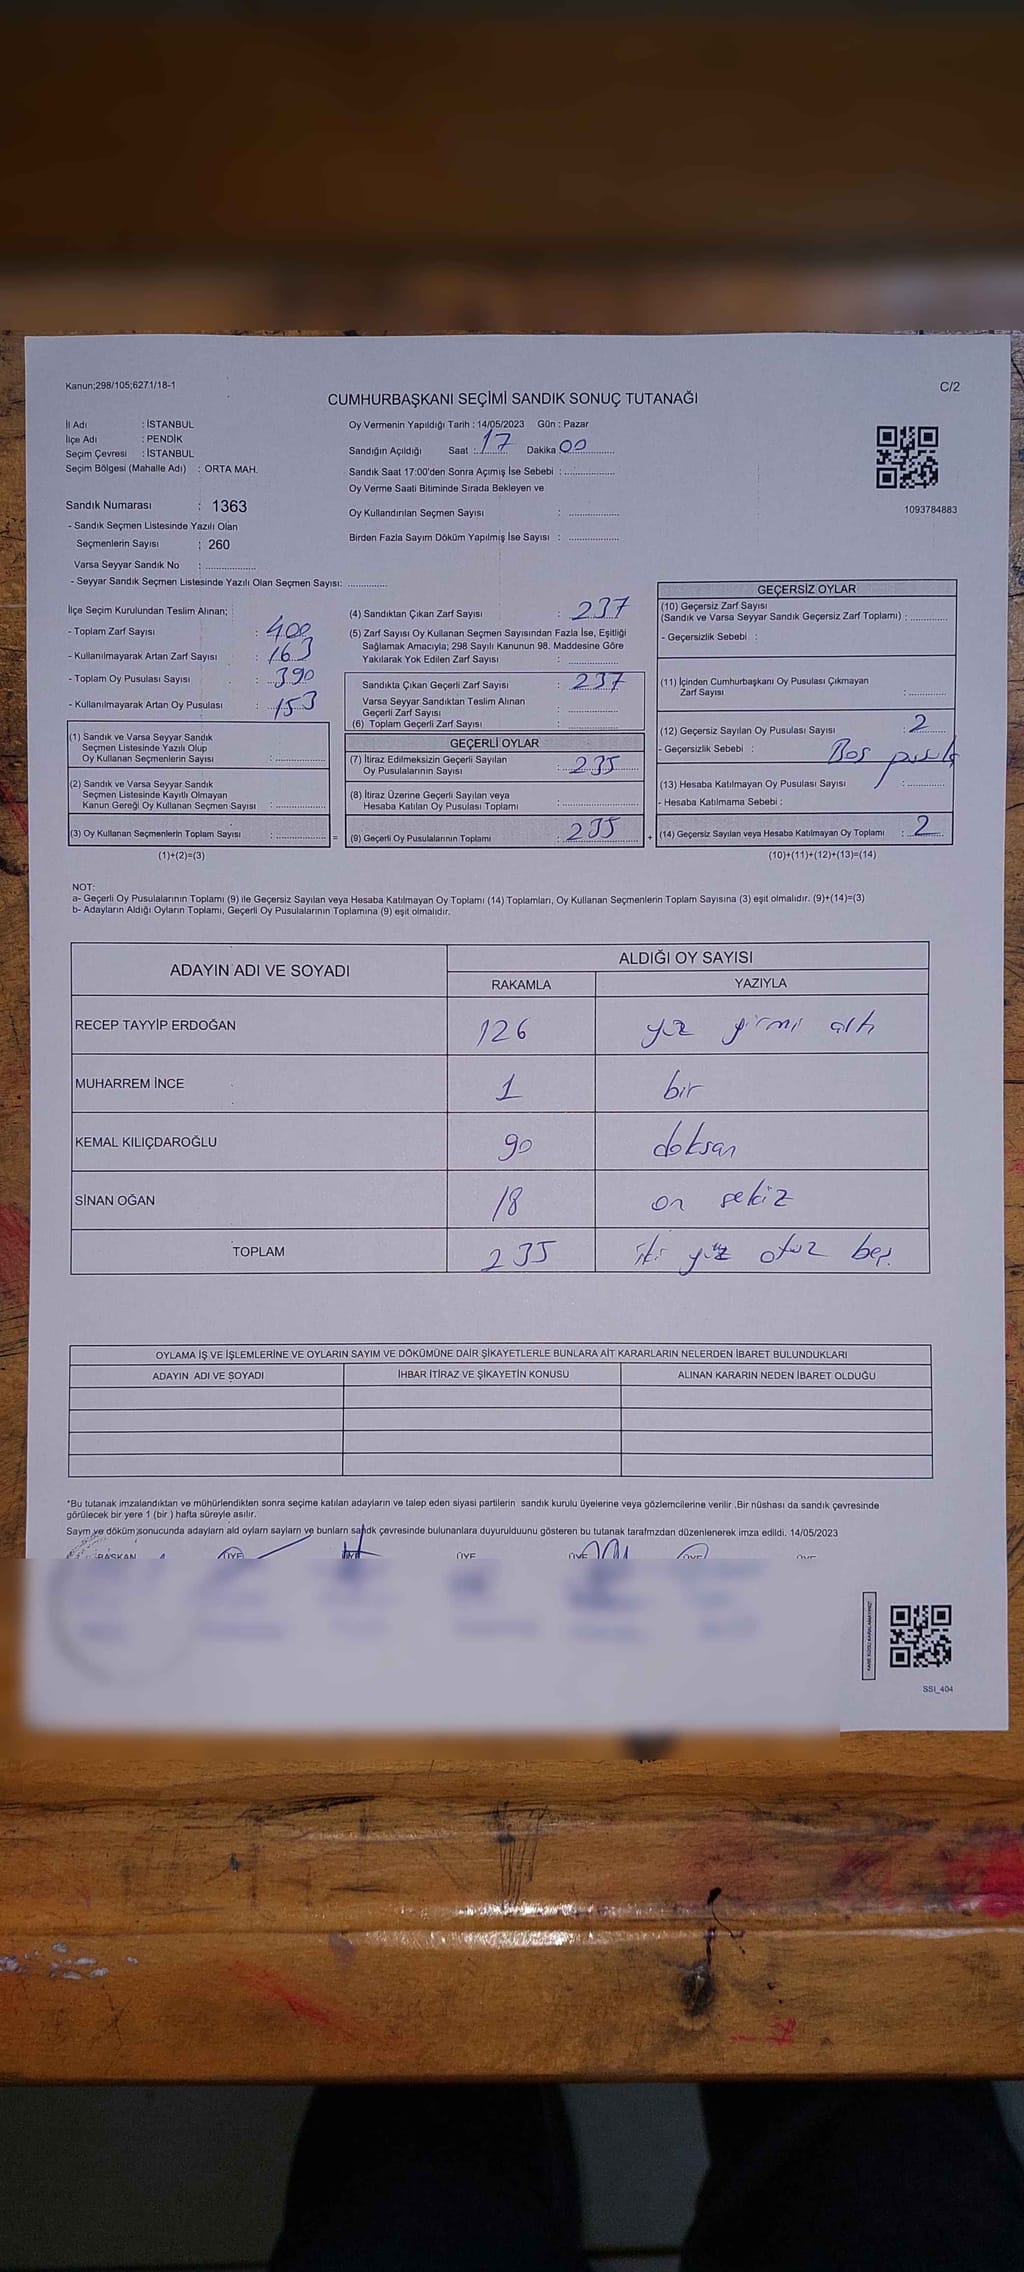 Kanun;298/105;6271/18-1
C/2
CUMHURBAŞKANI SEÇİMİ SANDIK SONUÇ TUTANAĞI
İl Adı : İSTANBUL
İlçe Adı : PENDİK
Seçim Çevresi : İSTANBUL
Seçim Bölgesi (Mahalle Adı) : ORTA MAH.
Sandık Numarası : 1363
- Sandık Seçmen Listesinde Yazılı Olan
Seçmenlerin Sayısı : 260
Varsa Seyyar Sandık No : ................
- Seyyar Sandık Seçmen Listesinde Yazılı Olan Seçmen Sayısı: .............
Oy Vermenin Yapıldığı Tarih : 14/05/2023 Gün : Pazar
Sandığın Açıldığı Saat : 17 Dakika 00
Sandık Saat 17:00'den Sonra Açımış İse Sebebi : ................
Oy Verme Saati Bitiminde Sırada Bekleyen ve
Oy Kullandırılan Seçmen Sayısı : ................
Birden Fazla Sayım Döküm Yapılmış İse Sayısı : ................
1093784883
İlçe Seçim Kurulundan Teslim Alınan;
- Toplam Zarf Sayısı : 400
- Kullanılmayarak Artan Zarf Sayısı : 163
- Toplam Oy Pusulası Sayısı : 390
- Kullanılmayarak Artan Oy Pusulası : 153
(1) Sandık ve Varsa Seyyar Sandık
Seçmen Listesinde Yazılı Olup
Oy Kullanan Seçmenlerin Sayısı : ................
(2) Sandık ve Varsa Seyyar Sandık
Seçmen Listesinde Kayıtlı Olmayan
Kanun Gereği Oy Kullanan Seçmen Sayısı : ................
(3) Oy Kullanan Seçmenlerin Toplam Sayısı : ................ =
(1)+(2)=(3)
(4) Sandıktan Çıkan Zarf Sayısı : 237
(5) Zarf Sayısı Oy Kullanan Seçmen Sayısından Fazla İse, Eşitliği
Sağlamak Amacıyla; 298 Sayılı Kanunun 98. Maddesine Göre
Yakılarak Yok Edilen Zarf Sayısı : ................
Sandıkta Çıkan Geçerli Zarf Sayısı : 237
Varsa Seyyar Sandıktan Teslim Alınan
Geçerli Zarf Sayısı : ................
(6) Toplam Geçerli Zarf Sayısı : ................
GEÇERLİ OYLAR
(7) İtiraz Edilmeksizin Geçerli Sayılan
Oy Pusulalarının Sayısı : 235
(8) İtiraz Üzerine Geçerli Sayılan veya
Hesaba Katılan Oy Pusulası Toplamı : ................
(9) Geçerli Oy Pusulalarının Toplamı : 235 +
GEÇERSİZ OYLAR
(10) Geçersiz Zarf Sayısı
(Sandık ve Varsa Seyyar Sandık Geçersiz Zarf Toplamı) : ............
- Geçersizlik Sebebi :
(11) İçinden Cumhurbaşkanı Oy Pusulası Çıkmayan
Zarf Sayısı : ............
(12) Geçersiz Sayılan Oy Pusulası Sayısı : 2
- Geçersizlik Sebebi : Boş pusula
(13) Hesaba Katılmayan Oy Pusulası Sayısı : ............
- Hesaba Katılmama Sebebi :
(14) Geçersiz Sayılan veya Hesaba Katılmayan Oy Toplamı : 2
(10)+(11)+(12)+(13)=(14)
NOT:
a- Geçerli Oy Pusulalarının Toplamı (9) ile Geçersiz Sayılan veya Hesaba Katılmayan Oy Toplamı (14) Toplamları, Oy Kullanan Seçmenlerin Toplam Sayısına (3) eşit olmalıdır. (9)+(14)=(3)
b- Adayların Aldığı Oyların Toplamı, Geçerli Oy Pusulalarının Toplamına (9) eşit olmalıdır.
ADAYIN ADI VE SOYADI
ALDIĞI OY SAYISI
RAKAMLA YAZIYLA
RECEP TAYYİP ERDOĞAN 126 yüz yirmi altı
MUHARREM İNCE 1 bir
KEMAL KILIÇDAROĞLU 90 doksan
SİNAN OĞAN 18 on sekiz
TOPLAM 235 iki yüz otuz beş
OYLAMA İŞ VE İŞLEMLERİNE VE OYLARIN SAYIM VE DÖKÜMÜNE DAİR ŞİKAYETLERLE BUNLARA AİT KARARLARIN NELERDEN İBARET BULUNDUKLARI
ADAYIN ADI VE SOYADI İHBAR İTİRAZ VE ŞİKAYETİN KONUSU ALINAN KARARIN NEDEN İBARET OLDUĞU
*Bu tutanak imzalandıktan ve mühürlendikten sonra seçime katılan adayların ve talep eden siyasi partilerin sandık kurulu üyelerine veya gözlemcilerine verilir .Bir nüshası da sandık çevresinde
görülecek bir yere 1 (bir ) hafta süreyle asılır.
Saym ve döküm sonucunda adaylarn ald oylarn saylarn ve bunlarn sandk çevresinde bulunanlara duyurulduunu gösteren bu tutanak tarafmzdan düzenlenerek imza edildi. 14/05/2023
BAŞKAN ÜYE ÜYE ÜYE ÜYE ÜYE ÜYE
SSI_404